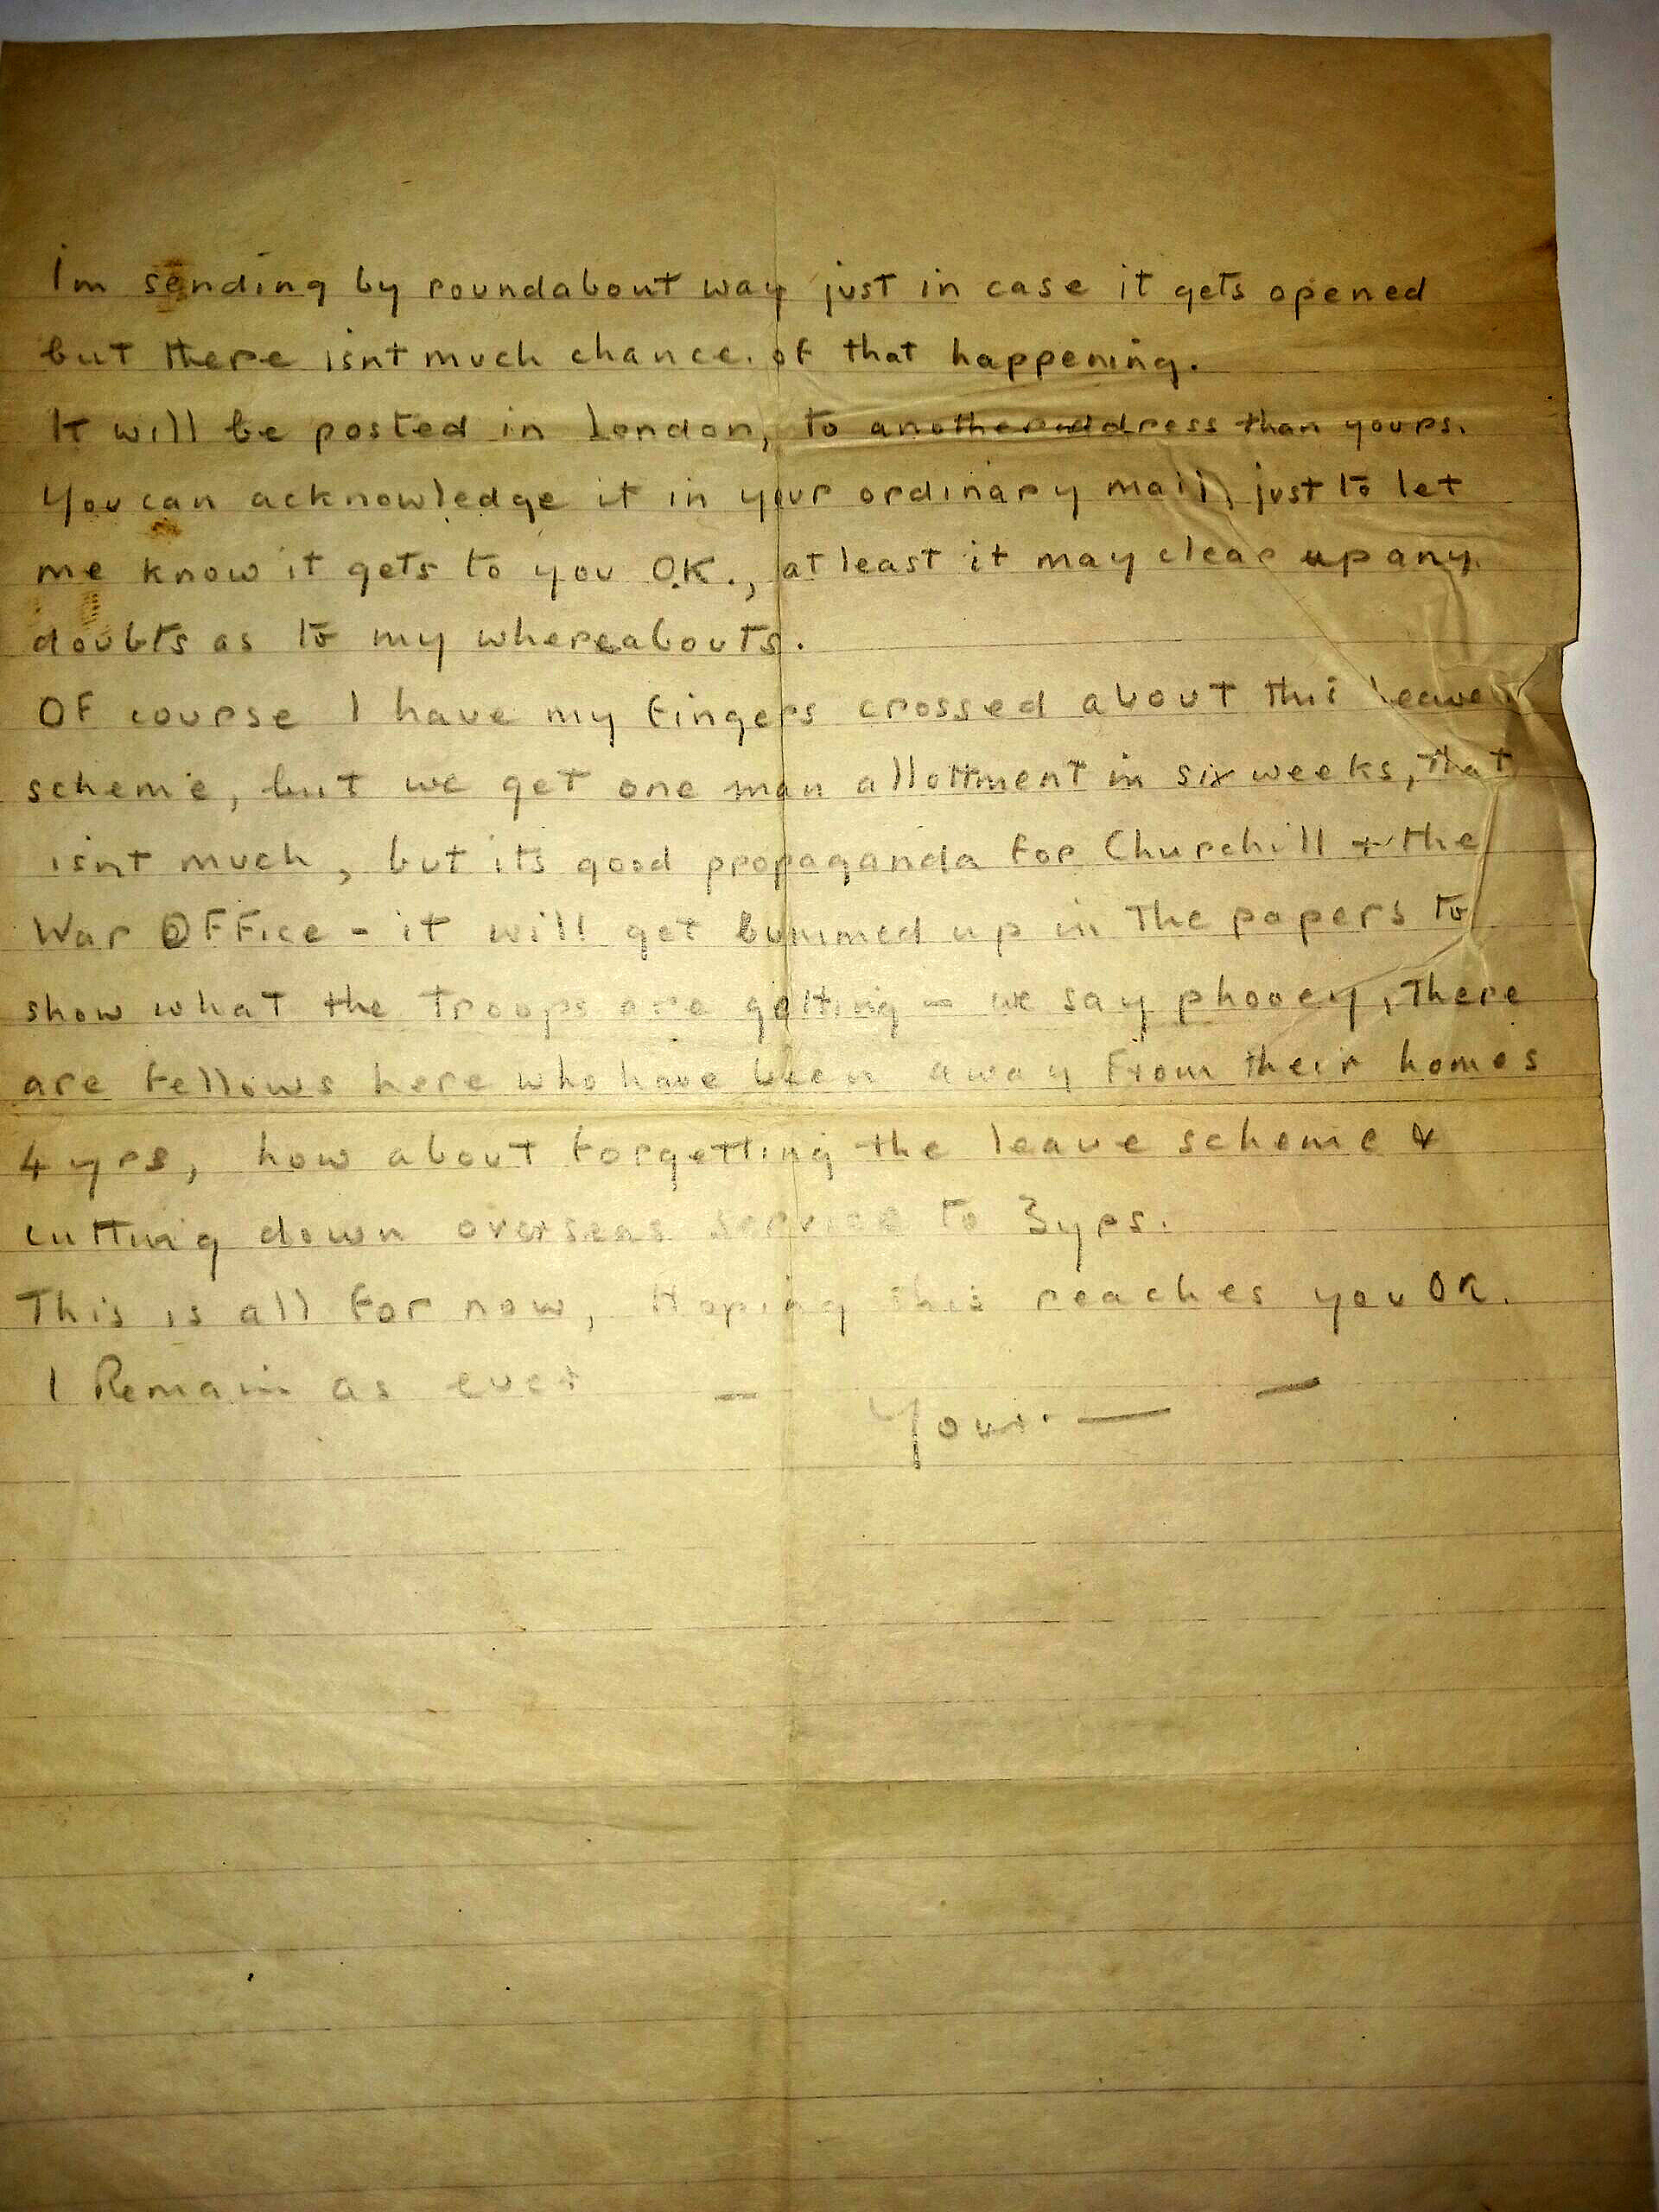 Im sending by roundabout way just in case it gets opened
but there isnt much chance. of that happening.
It will be posted in London, to another address than yours.
You can acknowledge it in your ordinary mail, just to let
me know it gets to you O.K., at least it may clear up any
doubts as to my whereabouts.
Of course I have my fingers crossed about this leave
scheme, but we get one man allottment in six weeks, that
isnt much, but its good propaganda for Churchill + the
War Office - it will get bummed up in the papers to
show what the troops are getting - we say phooey, there
are fellows here who have been away from their homes
4 yrs, how about forgetting the leave scheme &
cutting down overseas service to 3yrs.
This is all for now, Hoping this reaches you OK.
I Remain as ever -
Yours — —